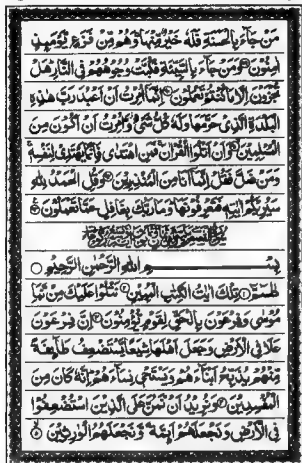 مَنْ جَآءَ بِالْحَسَنَةِ فَلَهٗ خَيْرٌ مِّنْهَا وَهُمْ مِّنْ فَزَعٍ يَّوْمَىِٕذٍ
اٰمِنُوْنَ وَمَنْ جَآءَ بِالسَّيِّئَةِ فَكُبَّتْ وُجُوْهُهُمْ فِى النَّارِ هَلْ
تُجْزَوْنَ اِلَّا مَا كُنْتُمْ تَعْمَلُوْنَ اِنَّمَآ اُمِرْتُ اَنْ اَعْبُدَ رَبَّ هٰذِهِ
الْبَلْدَةِ الَّذِىْ حَرَّمَهَا وَلَهٗ كُلُّ شَىْءٍ وَّاُمِرْتُ اَنْ اَكُوْنَ مِنَ
الْمُسْلِمِيْنَ وَاَنْ اَتْلُوَا الْقُرْاٰنَ فَمَنِ اهْتَدٰى فَاِنَّمَا يَهْتَدِىْ لِنَفْسِهٖ
وَمَنْ ضَلَّ فَقُلْ اِنَّمَآ اَنَا مِنَ الْمُنْذِرِيْنَ وَقُلِ الْحَمْدُ لِلّٰهِ
سَيُرِيْكُمْ اٰيٰتِهٖ فَتَعْرِفُوْنَهَا وَمَا رَبُّكَ بِغَافِلٍ عَمَّا تَعْمَلُوْنَ
بِسْمِ اللّٰهِ الرَّحْمٰنِ الرَّحِيْمِ
طٰسٓمّٓ ۱ تِلْكَ اٰيٰتُ الْكِتٰبِ الْمُبِيْنِ ۲ نَتْلُوْا عَلَيْكَ مِنْ نَّبَاِ
مُوْسٰى وَفِرْعَوْنَ بِالْحَقِّ لِقَوْمٍ يُّؤْمِنُوْنَ ۳ اِنَّ فِرْعَوْنَ
عَلَا فِى الْاَرْضِ وَجَعَلَ اَهْلَهَا شِيَعًا يَّسْتَضْعِفُ طَآىِٕفَةً
مِّنْهُمْ يُذَبِّحُ اَبْنَآءَهُمْ وَيَسْتَحْىٖ نِسَآءَهُمْ اِنَّهٗ كَانَ مِنَ
الْمُفْسِدِيْنَ ۴ وَنُرِيْدُ اَنْ نَّمُنَّ عَلَى الَّذِيْنَ اسْتُضْعِفُوْا
فِى الْاَرْضِ وَنَجْعَلَهُمْ اَىِٕمَّةً وَّنَجْعَلَهُمُ الْوٰرِثِيْنَ ۵